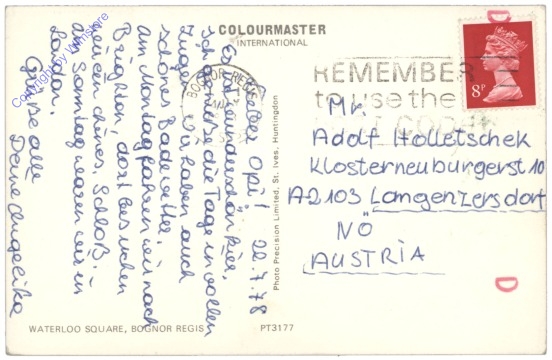 COLOURMASTER
INTERNATIONAL
Copyright by Wimstore
22.7.78
Lieber Opi!
Es ist wunderschön hier.
Ich genieße die Tage in vollen
Zügen. Wir haben auch
schönes Badewetter.
Am Montag fahren wir nach
Brighton, dort besuchen
wir ein Schloß.
Am Sonntag waren wir in
London.
Grüße alle
Deine Angelika
BOGNOR REGIS
REMEMBER
to use the
POST CODE
8P
Mr.
Adolf Holletschek
Klosterneuburgerst 10
A2103 Langenzersdorf
NÖ
AUSTRIA
Photo Precision Limited, St. Ives, Huntingdon
WATERLOO SQUARE, BOGNOR REGIS
PT3177
D
D